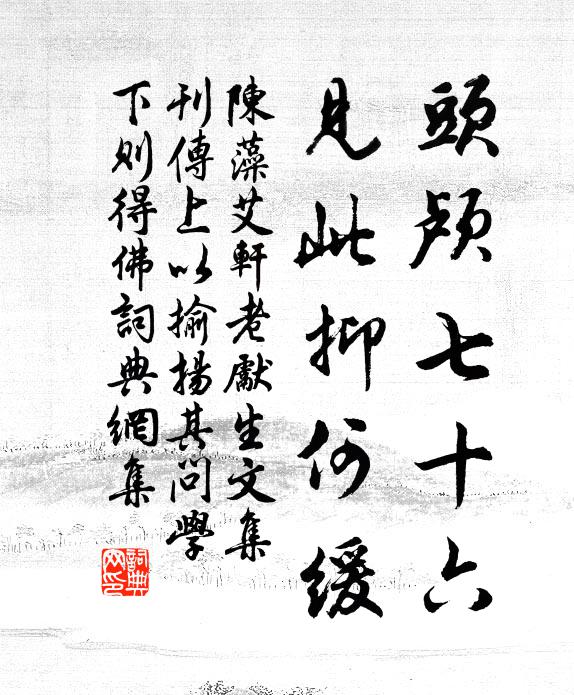 頭顱七十六
見此抑何緩
陳藻艾軒老獻生文集
刊傳上以揄揚其問學
下則得佛詞典網集
詞典網印